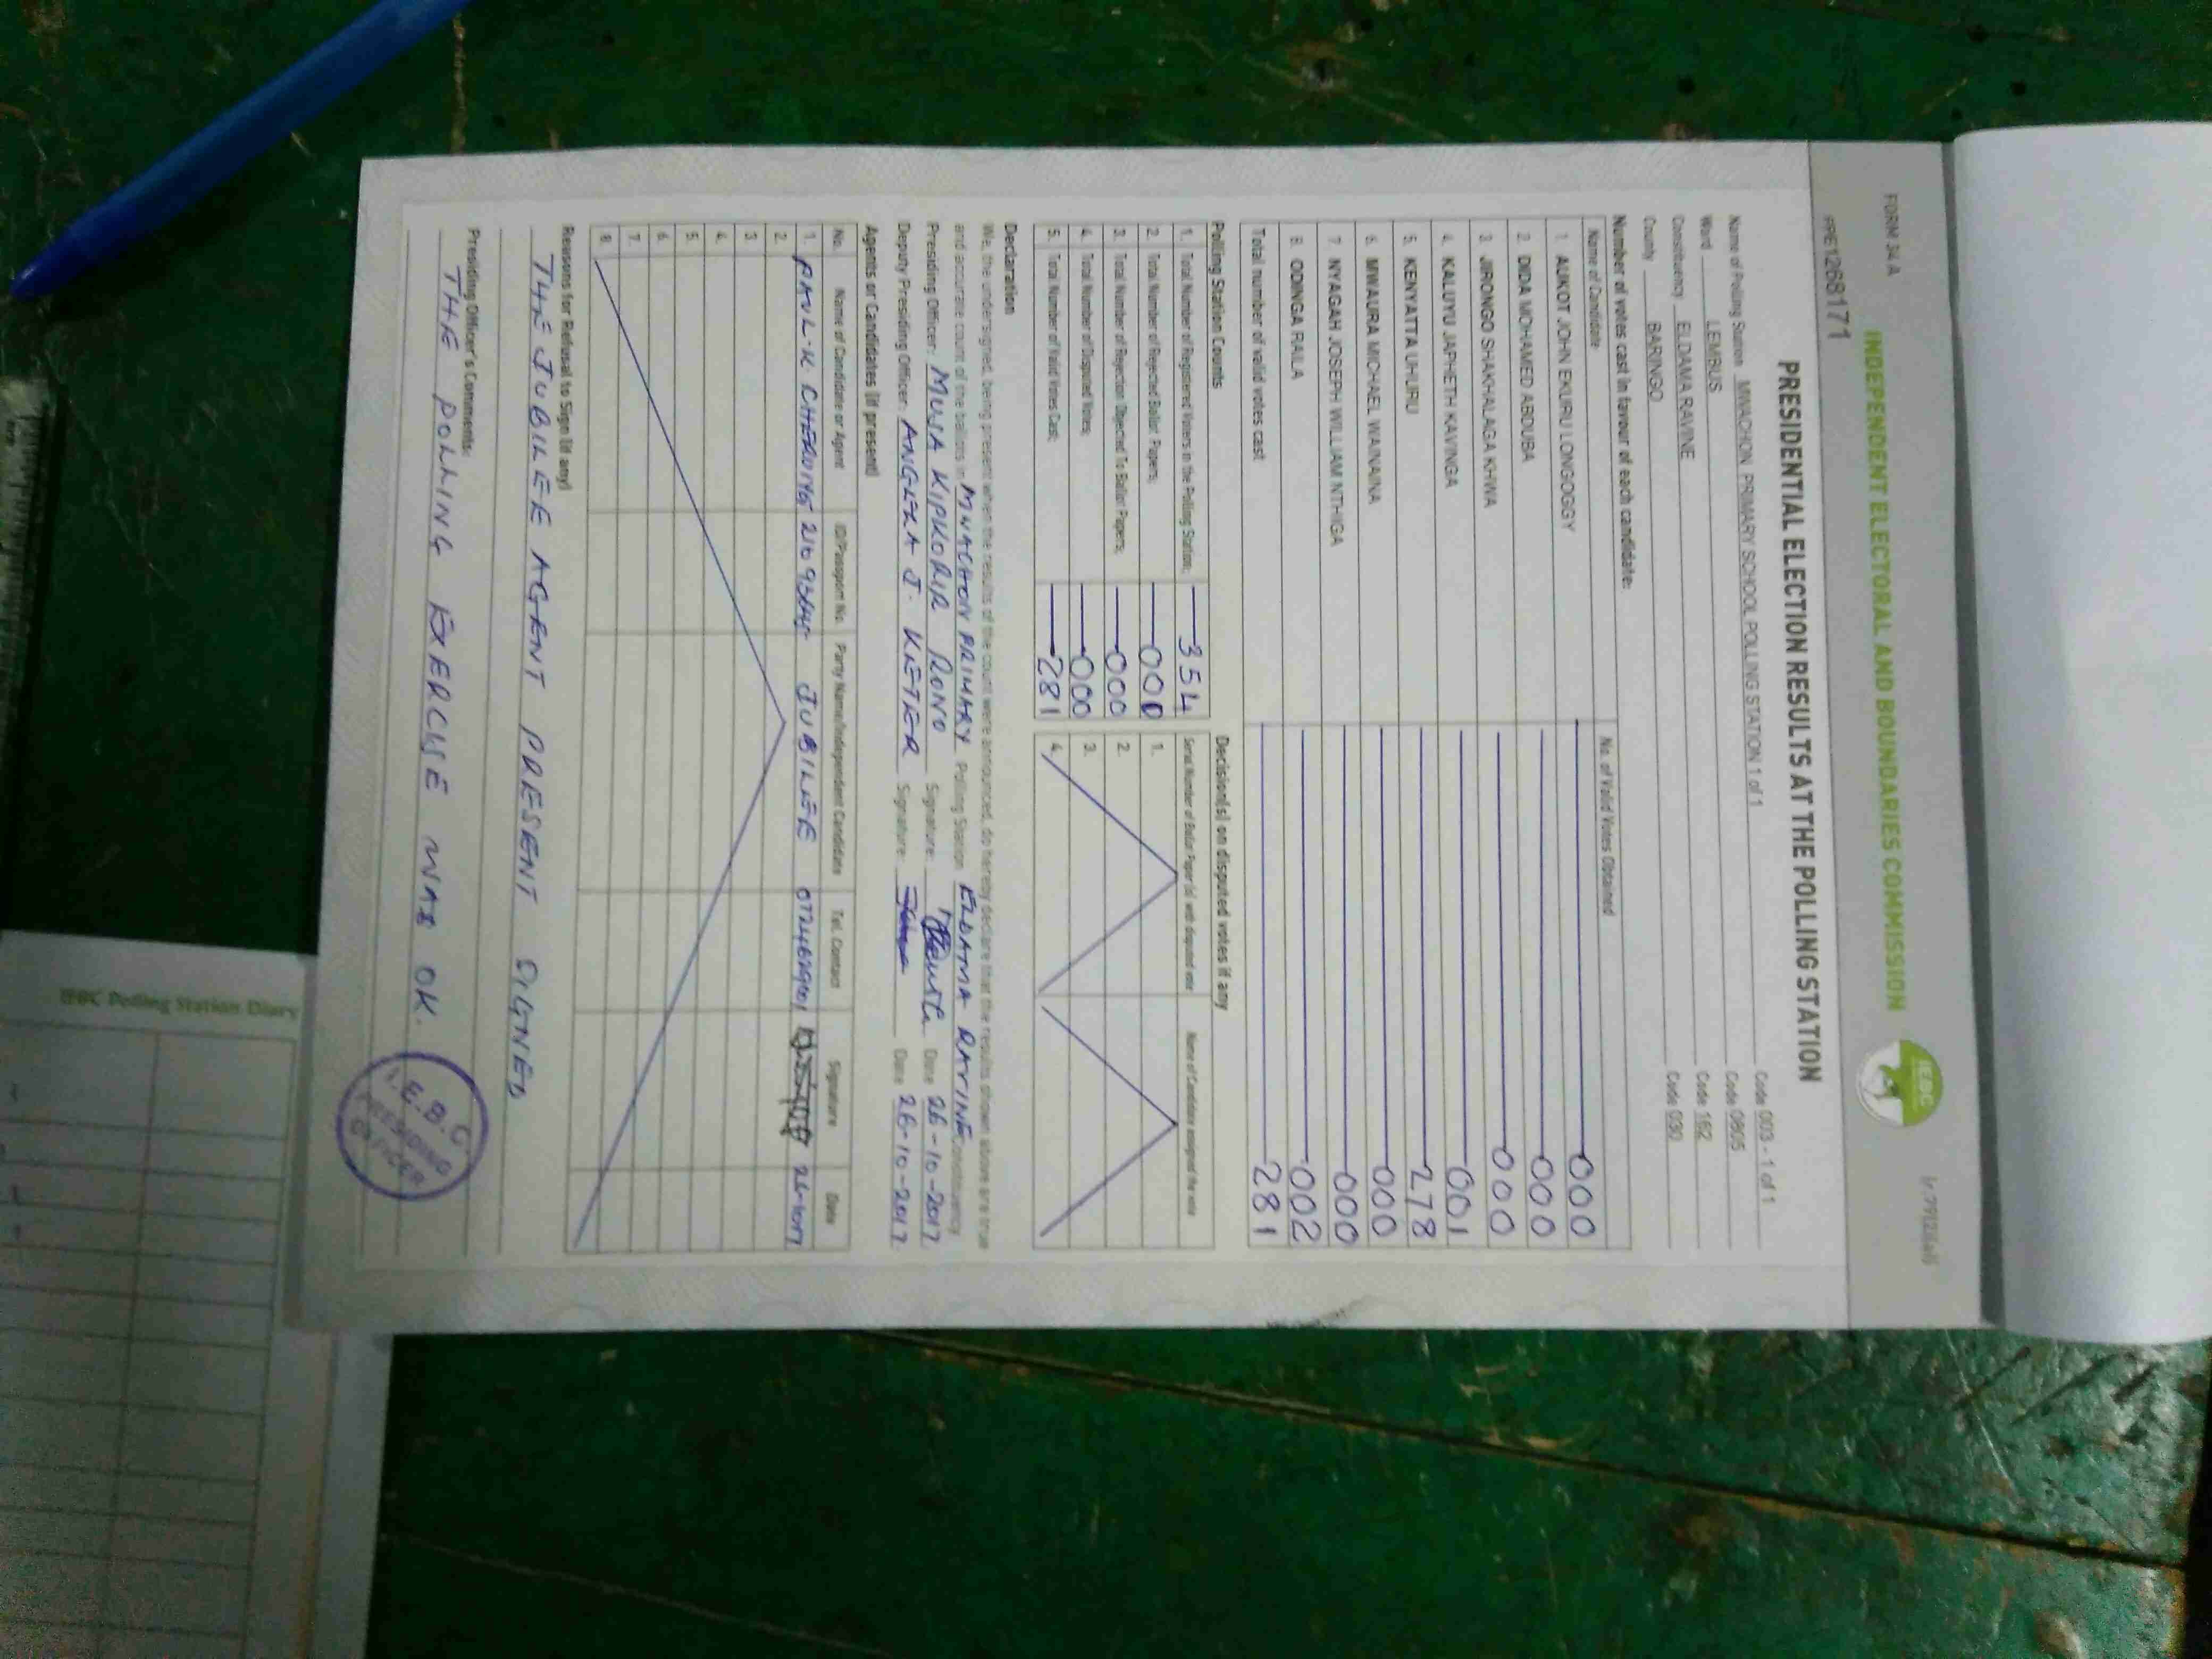 FORM 34 A
INDEPENDENT ELECTORAL AND BOUNDARIES COMMISSION
IEBC
PRE1268171
PRESIDENTIAL ELECTION RESULTS AT THE POLLING STATION
Name of Polling Station MWACHON PRIMARY SCHOOL POLLING STATION 1 of 1 Code 003 - 1 of 1
Ward LEMBUS Code 0805
Constituency ELDAMA RAVINE Code 162
County BARINGO Code 030
Number of votes cast in favour of each candidate:
Name of Candidate No. of Valid Votes Obtained
1. AUKOT JOHN EKURU LONGOGGY 000
2. DIDA MOHAMED ABDUBA 000
3. JIRONGO SHAKHALAGA KHWA 000
4. KALUYU JAPHETH KAVINGA 001
5. KENYATTA UHURU 278
6. MWAURA MICHAEL WAINAINA 000
7. NYAGAH JOSEPH WILLIAM NTHIGA 000
8. ODINGA RAILA 002
Total number of valid votes cast 281
Polling Station Counts
1. Total Number of Registered Voters in the Polling Station; 354
2. Total Number of Rejected Ballot Papers; 000
3. Total Number of Rejection Objected To Ballot Papers; 000
4. Total Number of Disputed Votes; 000
5. Total Number of Valid Votes Cast; 281
Decision(s) on disputed votes if any
Serial Number of Ballot Paper (s) with disputed vote Name of Candidate assigned the vote
1.
2.
3.
4.
Declaration
We, the undersigned, being present when the results of the count were announced, do hereby declare that the results shown above are true
and accurate count of the ballots in MWACHON PRIMARY Polling Station ELDAMA RAVINE Constituency
Presiding Officer: MUSA KIPKORIR RONO Signature: Date 26-10-2017
Deputy Presiding Officer: ANGELA J. KIETER Signature: Date 26-10-2017
Agents or Candidates (if present)
No. Name of Candidate or Agent ID/Passport No. Party Name/Independent Candidate Tel. Contact Signature Date
1. PAUL K CHEROIYG JUBILEE
2.
3.
4.
5.
6.
7.
8.
Reasons for Refusal to Sign (if any)
THE JUBILEE AGENT PRESENT SIGNED
Presiding Officer's Comments:
THE POLLING EXERCISE WAS OK.
I.E.B.C
PRESIDING
OFFICER
IEBC Polling Station Diary